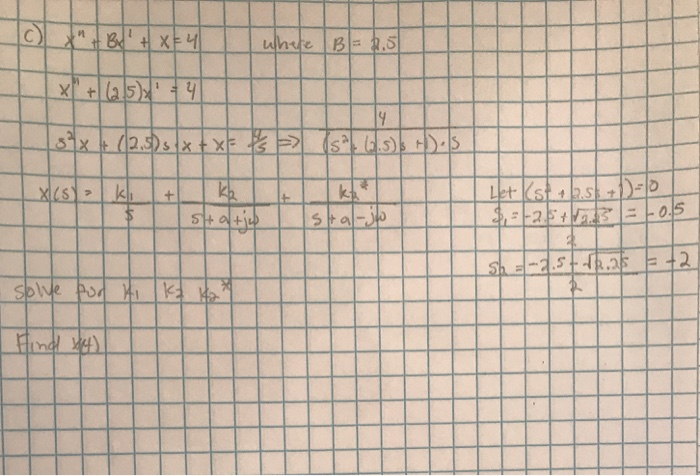 c) x" + Bx' + x = 4 where B = 2.5
x" + (2.5)x' = 4
s²x + (2.5)s·x + x = 4/s ⇒ 4/((s² + (2.5)s + 1)·s)
x(s) = k₁/s + k₂/(s+a+jω) + k₂*/(s+a-jω)
Let (s² + 2.5s + 1) = 0
S₁ = (-2.5 + √2.25)/2 = -0.5
S₂ = (-2.5 - √2.25)/2 = -2
Solve for k₁ k₂ k₂*
Find x(4)